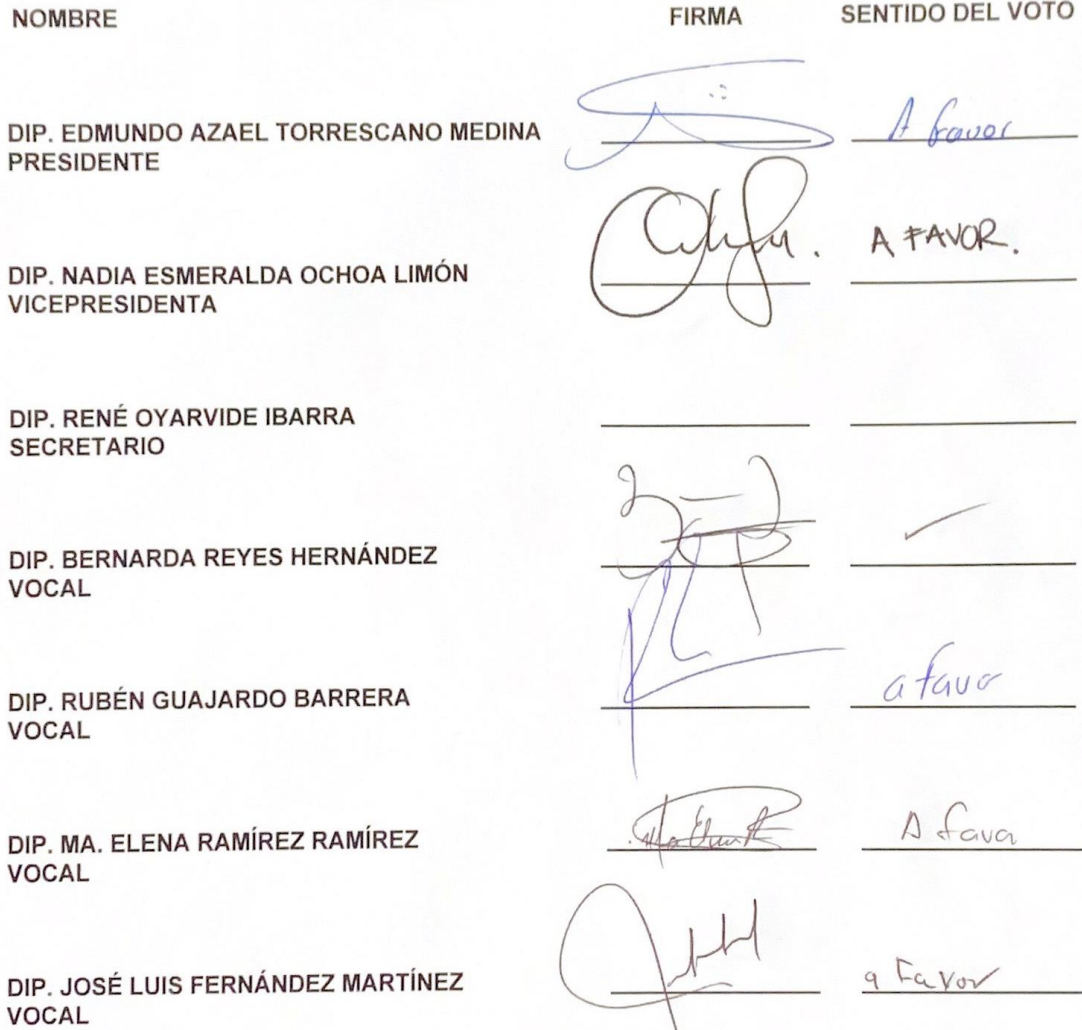 NOMBRE FIRMA SENTIDO DEL VOTO
DIP. EDMUNDO AZAEL TORRESCANO MEDINA A favor
PRESIDENTE
A FAVOR.
DIP. NADIA ESMERALDA OCHOA LIMÓN
VICEPRESIDENTA
DIP. RENÉ OYARVIDE IBARRA
SECRETARIO
DIP. BERNARDA REYES HERNÁNDEZ
VOCAL
DIP. RUBÉN GUAJARDO BARRERA a favor
VOCAL
DIP. MA. ELENA RAMÍREZ RAMÍREZ A favor
VOCAL
DIP. JOSÉ LUIS FERNÁNDEZ MARTÍNEZ a Favor
VOCAL